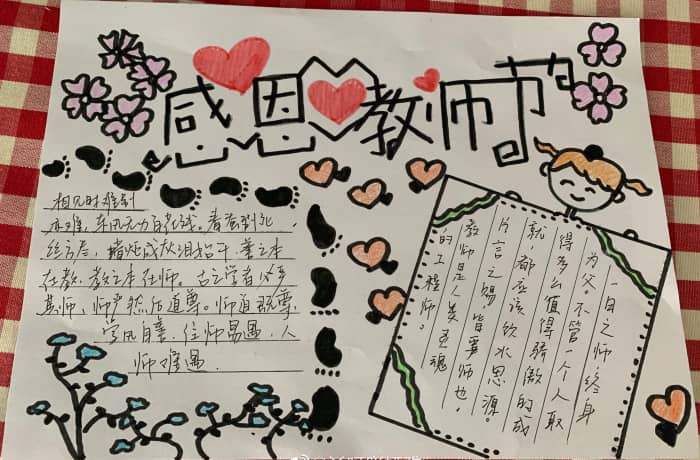 感恩教师节
相见时难别
亦难,东风无力百花残。春蚕到死,
丝方尽,蜡炬成灰泪始干,業之本
在教,教之本在师。古之学者必严
其师,师严然后道尊。师道既尊,
学风自善,经师易遇,人
师难遇.
一日之师,终身
为父不管一个人取
得多么值得骄傲的成
就,都应该饮水思源。
片言之赐,皆事师也。
教师是人类灵魂
的工程师。